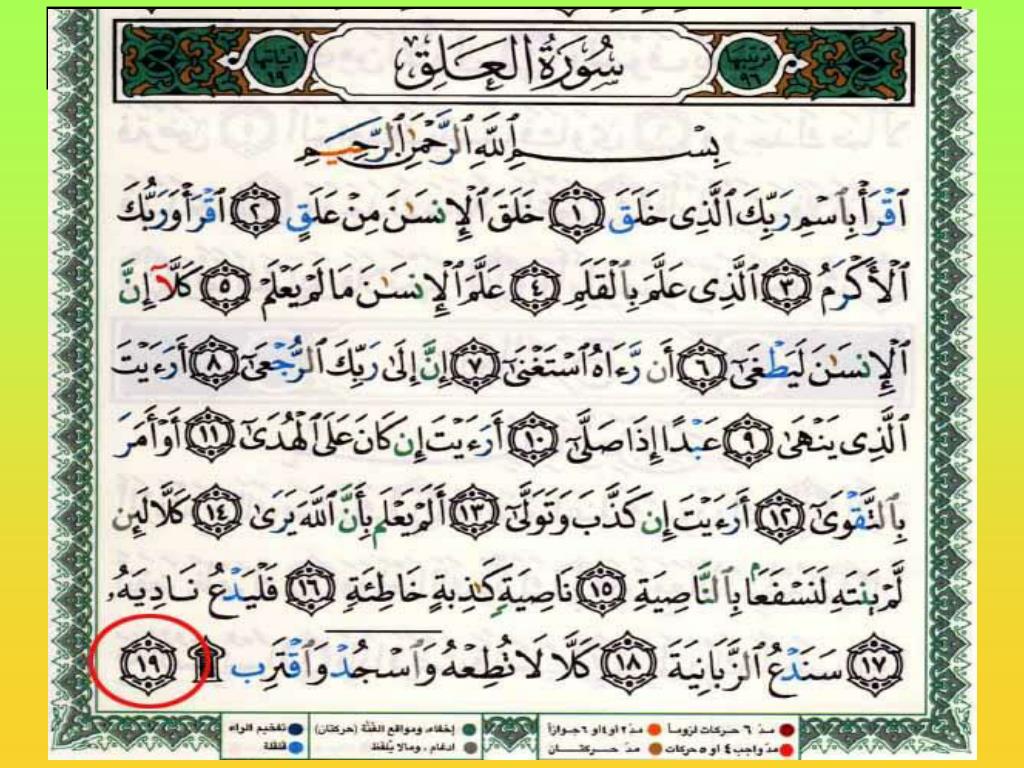 ترتيبها ٩٦ سُورَةُ العَلَقِ آياتها ١٩
بِسْمِ ٱللَّهِ ٱلرَّحْمَٰنِ ٱلرَّحِيمِ
ٱقْرَأْ بِٱسْمِ رَبِّكَ ٱلَّذِى خَلَقَ ١ خَلَقَ ٱلْإِنسَٰنَ مِنْ عَلَقٍ ٢ ٱقْرَأْ وَرَبُّكَ
ٱلْأَكْرَمُ ٣ ٱلَّذِى عَلَّمَ بِٱلْقَلَمِ ٤ عَلَّمَ ٱلْإِنسَٰنَ مَا لَمْ يَعْلَمْ ٥ كَلَّآ إِنَّ
ٱلْإِنسَٰنَ لَيَطْغَىٰٓ ٦ أَن رَّءَاهُ ٱسْتَغْنَىٰٓ ٧ إِنَّ إِلَىٰ رَبِّكَ ٱلرُّجْعَىٰٓ ٨ أَرَءَيْتَ
ٱلَّذِى يَنْهَىٰ ٩ عَبْدًا إِذَا صَلَّىٰٓ ١٠ أَرَءَيْتَ إِن كَانَ عَلَى ٱلْهُدَىٰٓ ١١ أَوْ أَمَرَ
بِٱلتَّقْوَىٰٓ ١٢ أَرَءَيْتَ إِن كَذَّبَ وَتَوَلَّىٰٓ ١٣ أَلَمْ يَعْلَم بِأَنَّ ٱللَّهَ يَرَىٰ ١٤ كَلَّا لَئِن
لَّمْ يَنتَهِ لَنَسْفَعًۢا بِٱلنَّاصِيَةِ ١٥ نَاصِيَةٍ كَٰذِبَةٍ خَاطِئَةٍ ١٦ فَلْيَدْعُ نَادِيَهُۥ
١٧ سَنَدْعُ ٱلزَّبَانِيَةَ ١٨ كَلَّا لَا تُطِعْهُ وَٱسْجُدْ وَٱقْتَرِب ۩ ١٩
مدّ ٦ حركات لزوماً مدّ ٢ او ٤ او ٦ جوازاً إخفاء، ومواقع الغُنَّة (حركتان) تفخيم الراء
مدّ واجب ٤ او ٥ حركات مدّ حركتـــان ادغام، ومالا يُلفَظ قلقلة